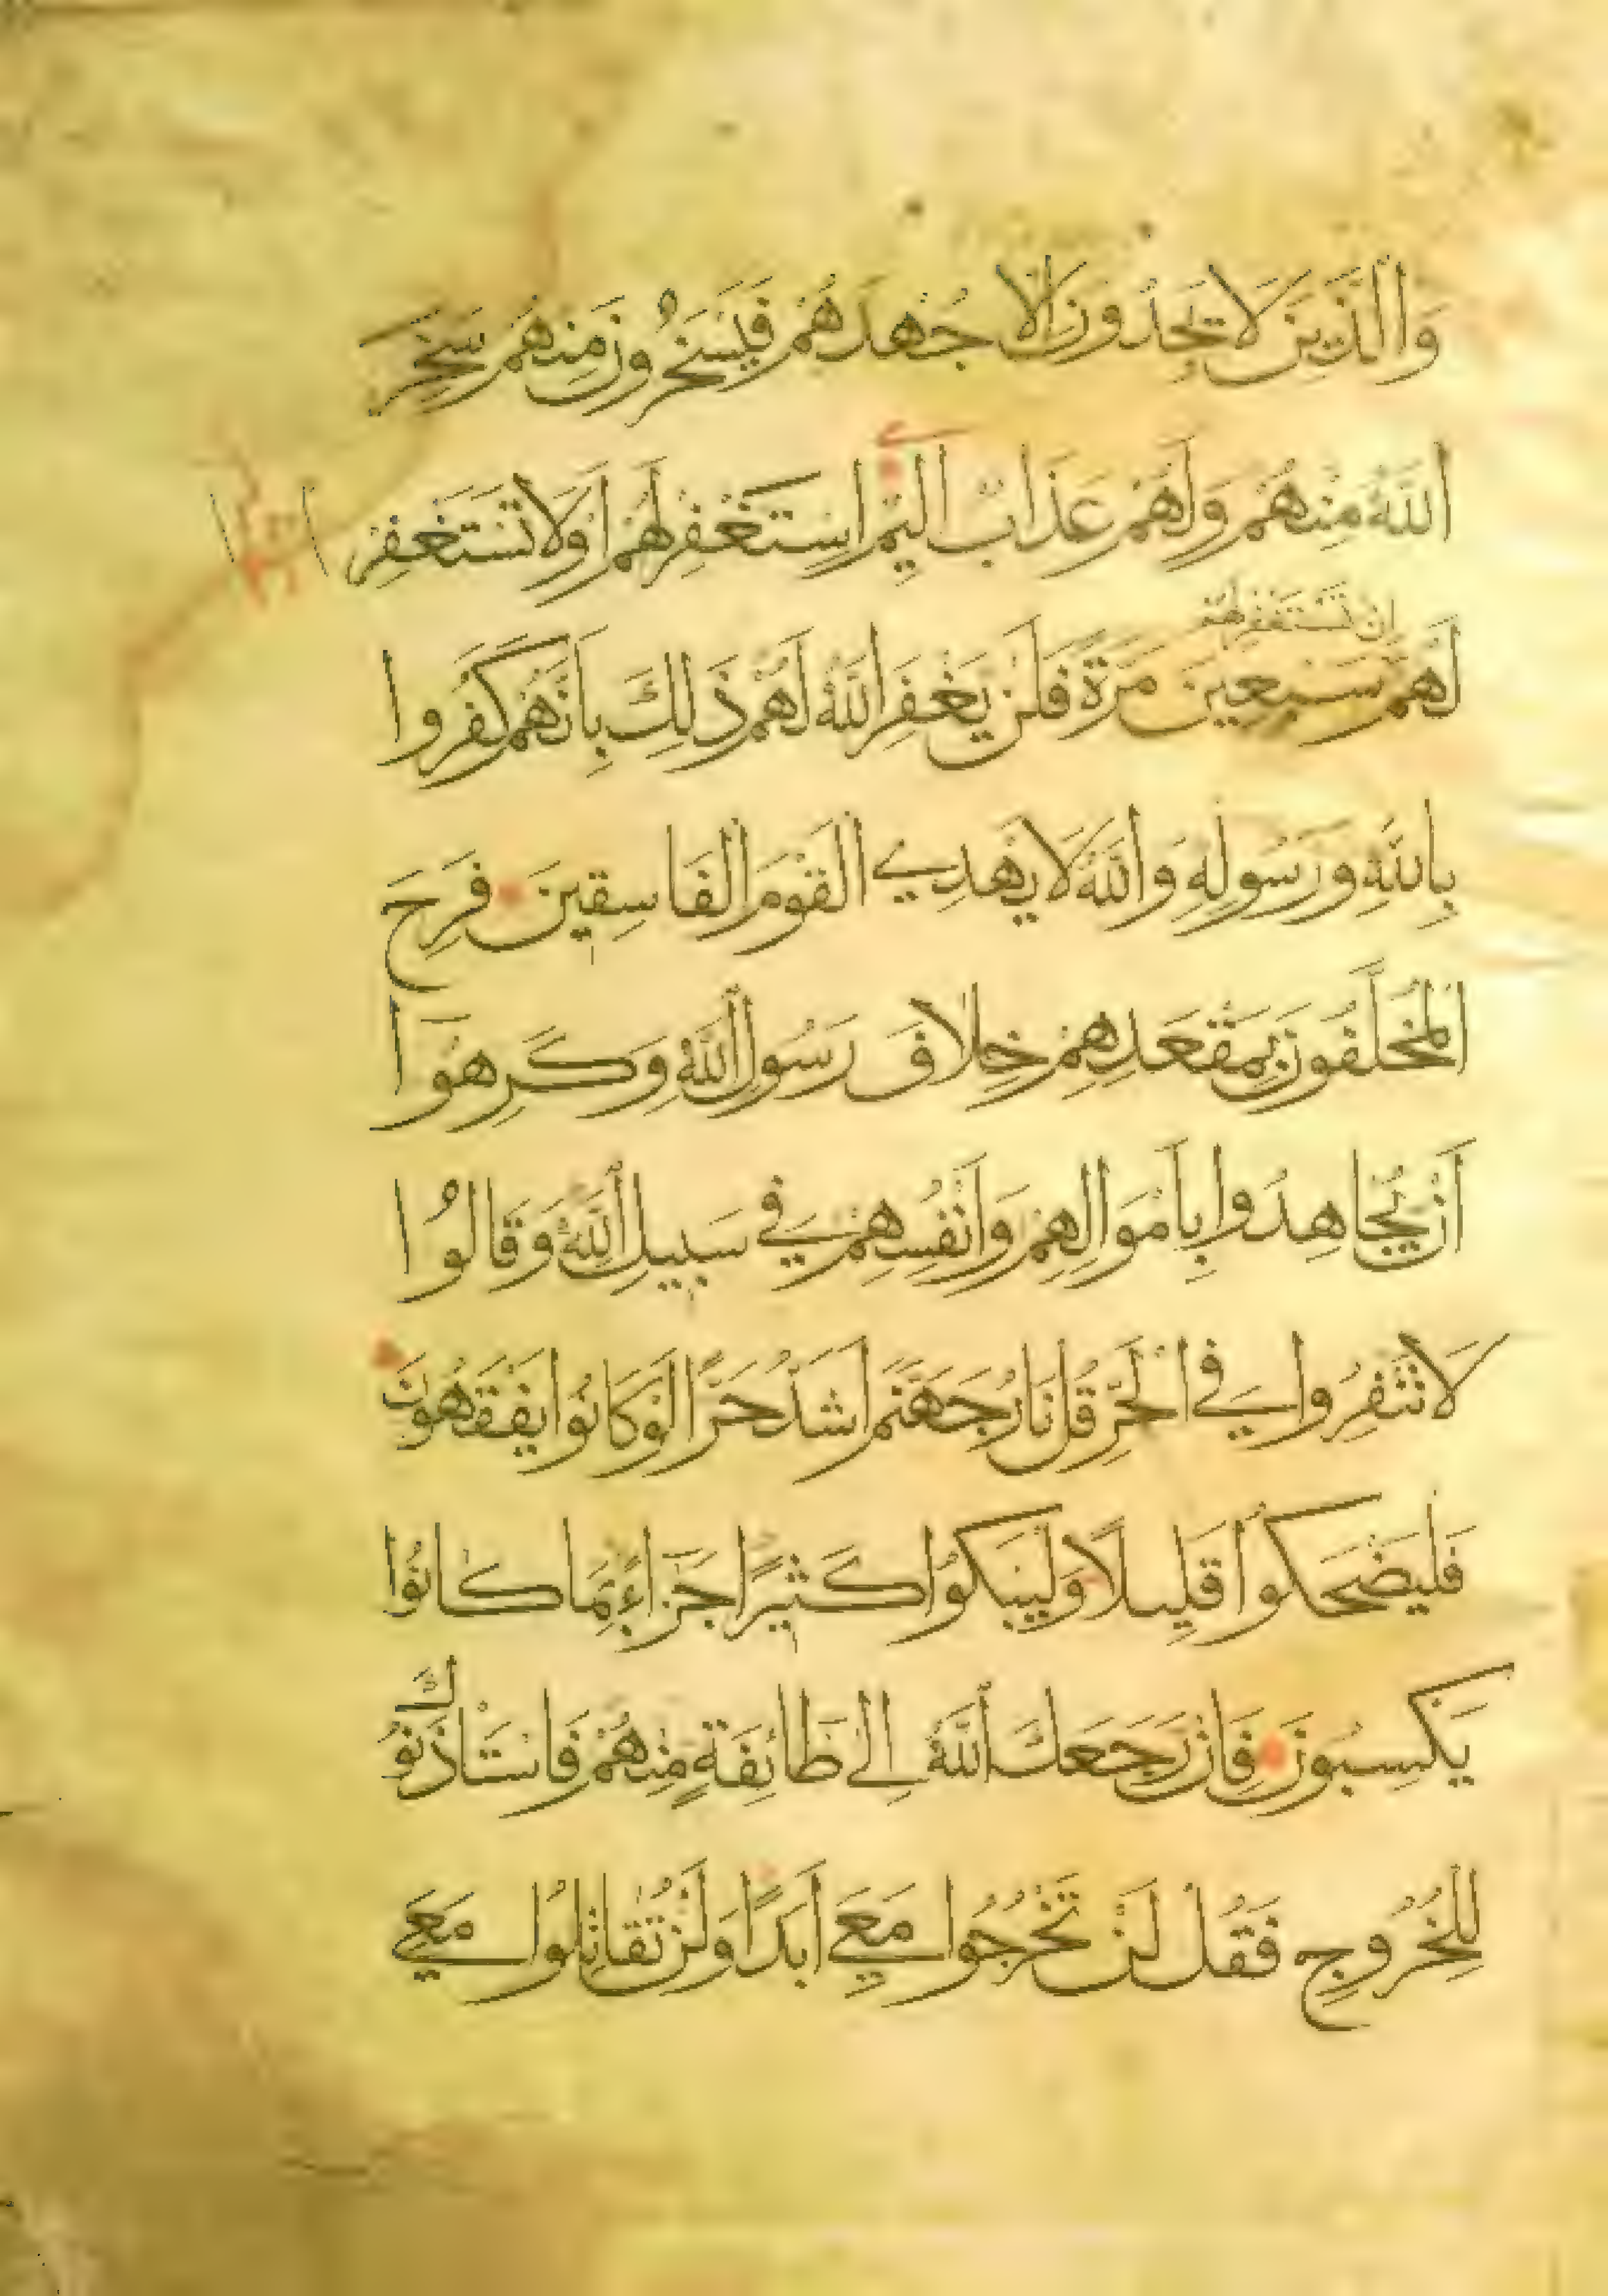 وَالَّذِينَ لَا يَجِدُونَ إِلَّا جُهْدَهُمْ فَيَسْخَرُونَ مِنْهُمْ سَخِرَ
اللَّهُ مِنْهُمْ وَلَهُمْ عَذَابٌ أَلِيمٌ اسْتَغْفِرْ لَهُمْ أَوْ لَا تَسْتَغْفِرْ
إِنْ تَسْتَغْفِرْ لَهُمْ
لَهُمْ سَبْعِينَ مَرَّةً فَلَنْ يَغْفِرَ اللَّهُ لَهُمْ ذَلِكَ بِأَنَّهُمْ كَفَرُوا
بِاللَّهِ وَرَسُولِهِ وَاللَّهُ لَا يَهْدِي الْقَوْمَ الْفَاسِقِينَ فَرِحَ
الْمُخَلَّفُونَ بِمَقْعَدِهِمْ خِلَافَ رَسُولِ اللَّهِ وَكَرِهُوا
أَنْ يُجَاهِدُوا بِأَمْوَالِهِمْ وَأَنْفُسِهِمْ فِي سَبِيلِ اللَّهِ وَقَالُوا
لَا تَنْفِرُوا فِي الْحَرِّ قُلْ نَارُ جَهَنَّمَ أَشَدُّ حَرًّا لَوْ كَانُوا يَفْقَهُونَ
فَلْيَضْحَكُوا قَلِيلًا وَلْيَبْكُوا كَثِيرًا جَزَاءً بِمَا كَانُوا
يَكْسِبُونَ فَإِنْ رَجَعَكَ اللَّهُ إِلَى طَائِفَةٍ مِنْهُمْ فَاسْتَأْذَنُوكَ
لِلْخُرُوجِ فَقُلْ لَنْ تَخْرُجُوا مَعِيَ أَبَدًا وَلَنْ تُقَاتِلُوا مَعِيَ